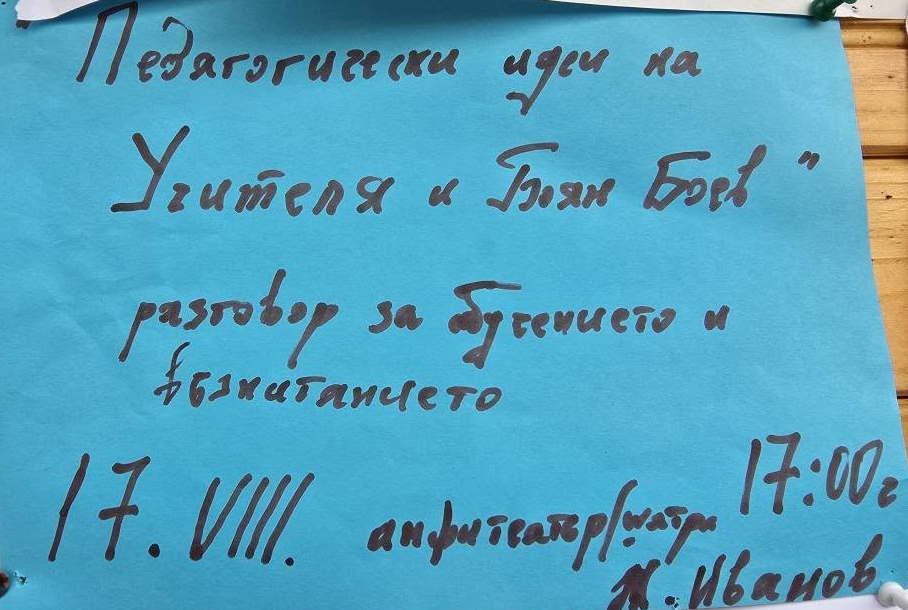 "Педагогически идеи на
Учителя и Боян Боев"
разговор за обучението и
възпитанието
17. VIII. амфитеатър/шатра 17:00 г
Н. Иванов